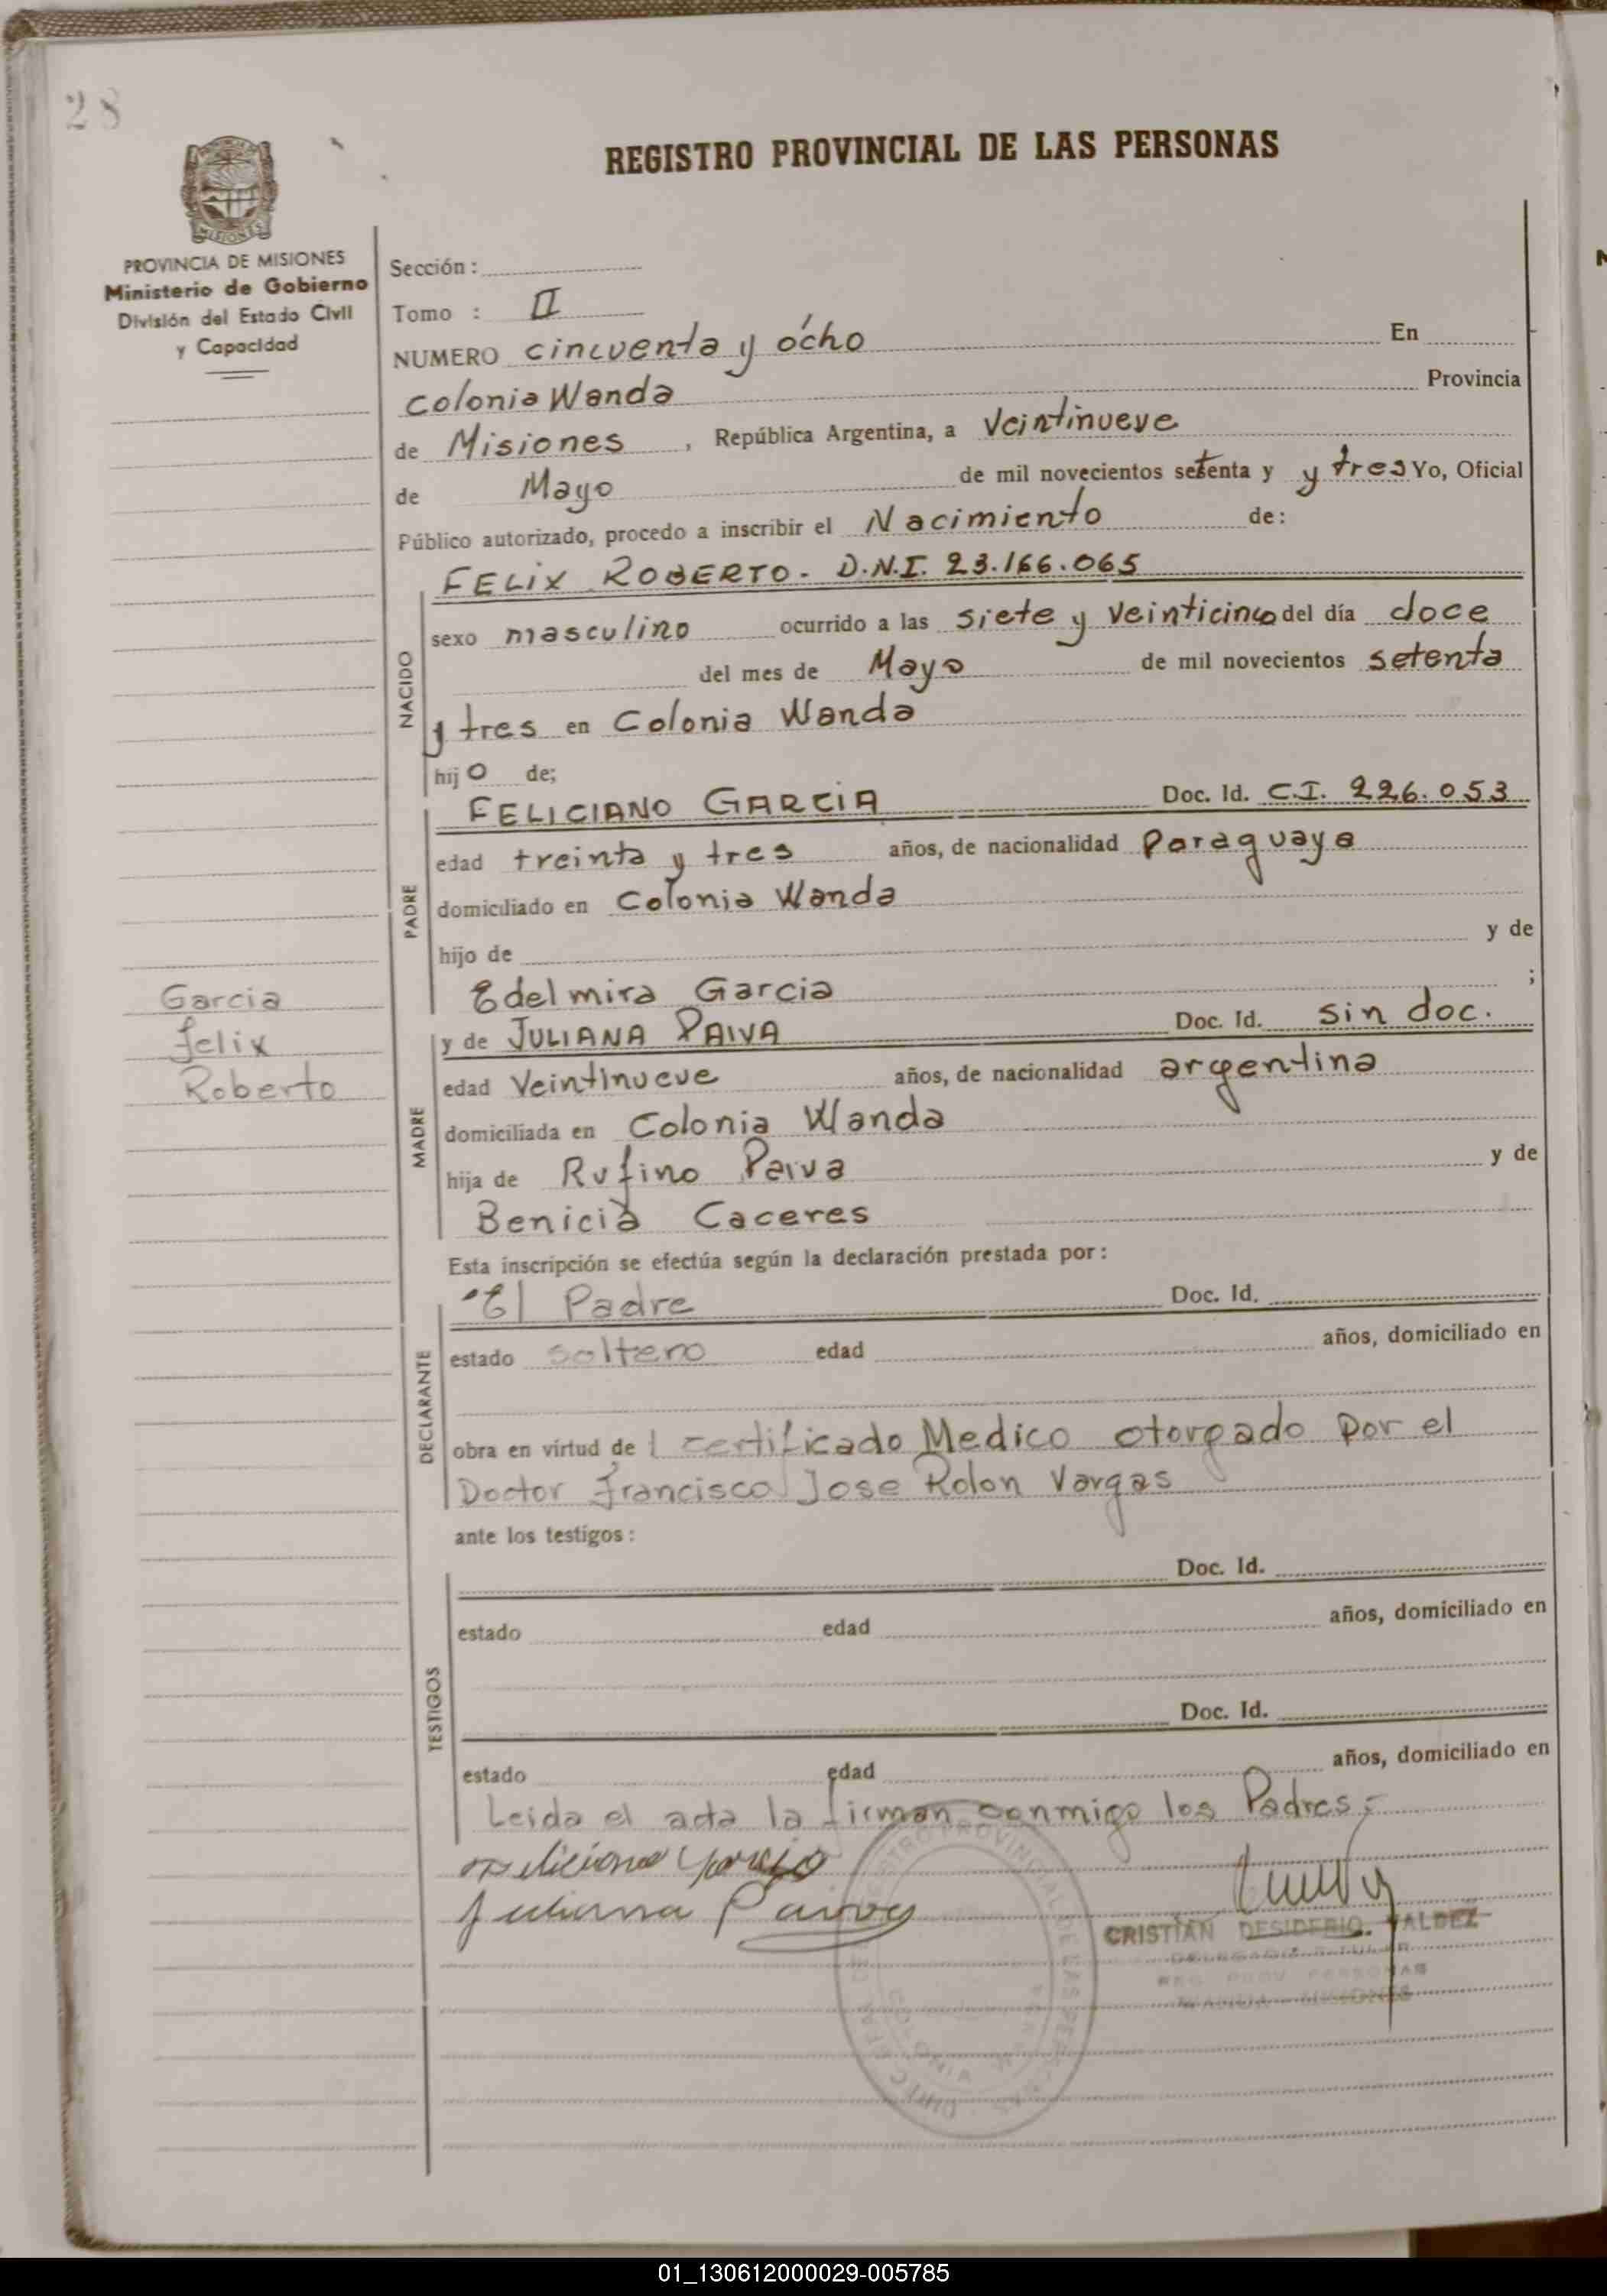 28
REGISTRO PROVINCIAL DE LAS PERSONAS
MISIONES
PROVINCIA DE MISIONES
Ministerio de Gobierno
División del Estado Civil
y Capacidad
Sección :
Tomo : II
NUMERO cincuenta y ocho En
Colonia Wanda Provincia
de Misiones , República Argentina, a Veintinueve
de Mayo de mil novecientos setenta y y tres Yo, Oficial
Público autorizado, procedo a inscribir el Nacimiento de:
NACIDO
FELIX ROBERTO - D.N.I. 23.166.065
sexo masculino ocurrido a las siete y veinticinco del día doce
del mes de Mayo de mil novecientos setenta
y tres en Colonia Wanda
hijo de;
PADRE
FELICIANO GARCIA Doc. Id. C.I. 226.053
edad treinta y tres años, de nacionalidad Paraguaya
domiciliado en Colonia Wanda
hijo de y de
Edelmira Garcia ;
Garcia
Felix
Roberto
MADRE
y de JULIANA PAIVA Doc. Id. sin doc.
edad Veintinueve años, de nacionalidad argentina
domiciliada en Colonia Wanda
hija de Rufino Paiva y de
Benicia Caceres
Esta inscripción se efectúa según la declaración prestada por :
DECLARANTE
El Padre Doc. Id.
estado soltero edad años, domiciliado en
obra en virtud de certificado Medico otorgado por el
Doctor Francisco Jose Rolon Vargas
ante los testigos :
TESTIGOS
Doc. Id.
estado edad años, domiciliado en
Doc. Id.
estado edad años, domiciliado en
Leida el acta la firman conmigo los Padres.-
Feliciano Garcia
Juliana Paiva
CRISTIAN DESIDERIO VALDEZ
DELEGADO TITULAR
REG. PROV. PERSONAS
WANDA - MISIONES
REGISTRO PROVINCIAL DE LAS PERSONAS
COLONIA WANDA
01_130612000029-005785